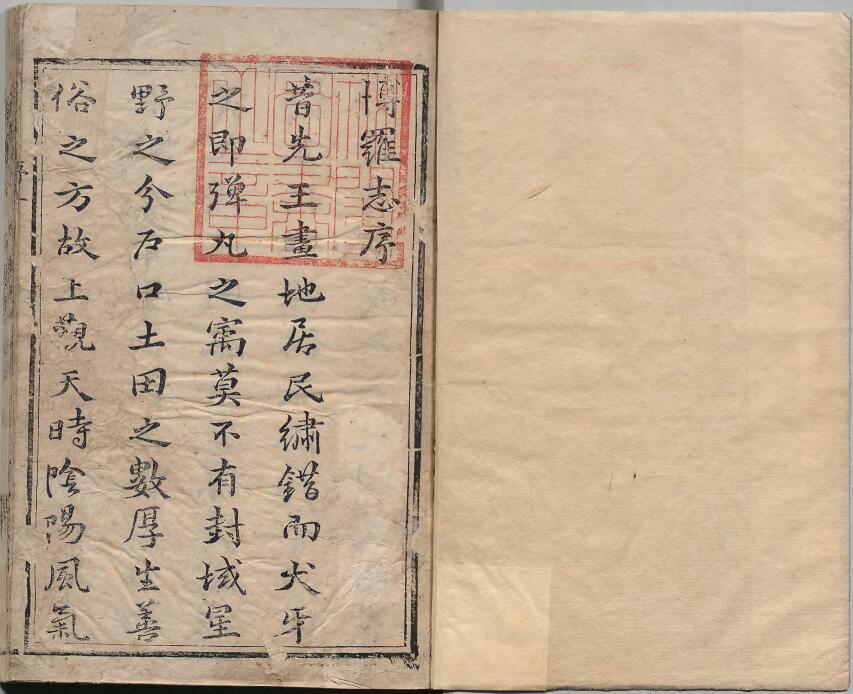 博羅志序
昔先王畫地居民繡錯而犬牙
之即彈丸之寓莫不有封域星
野之分户口土田之數厚生善
俗之方故上觀天時陰陽風氣
序